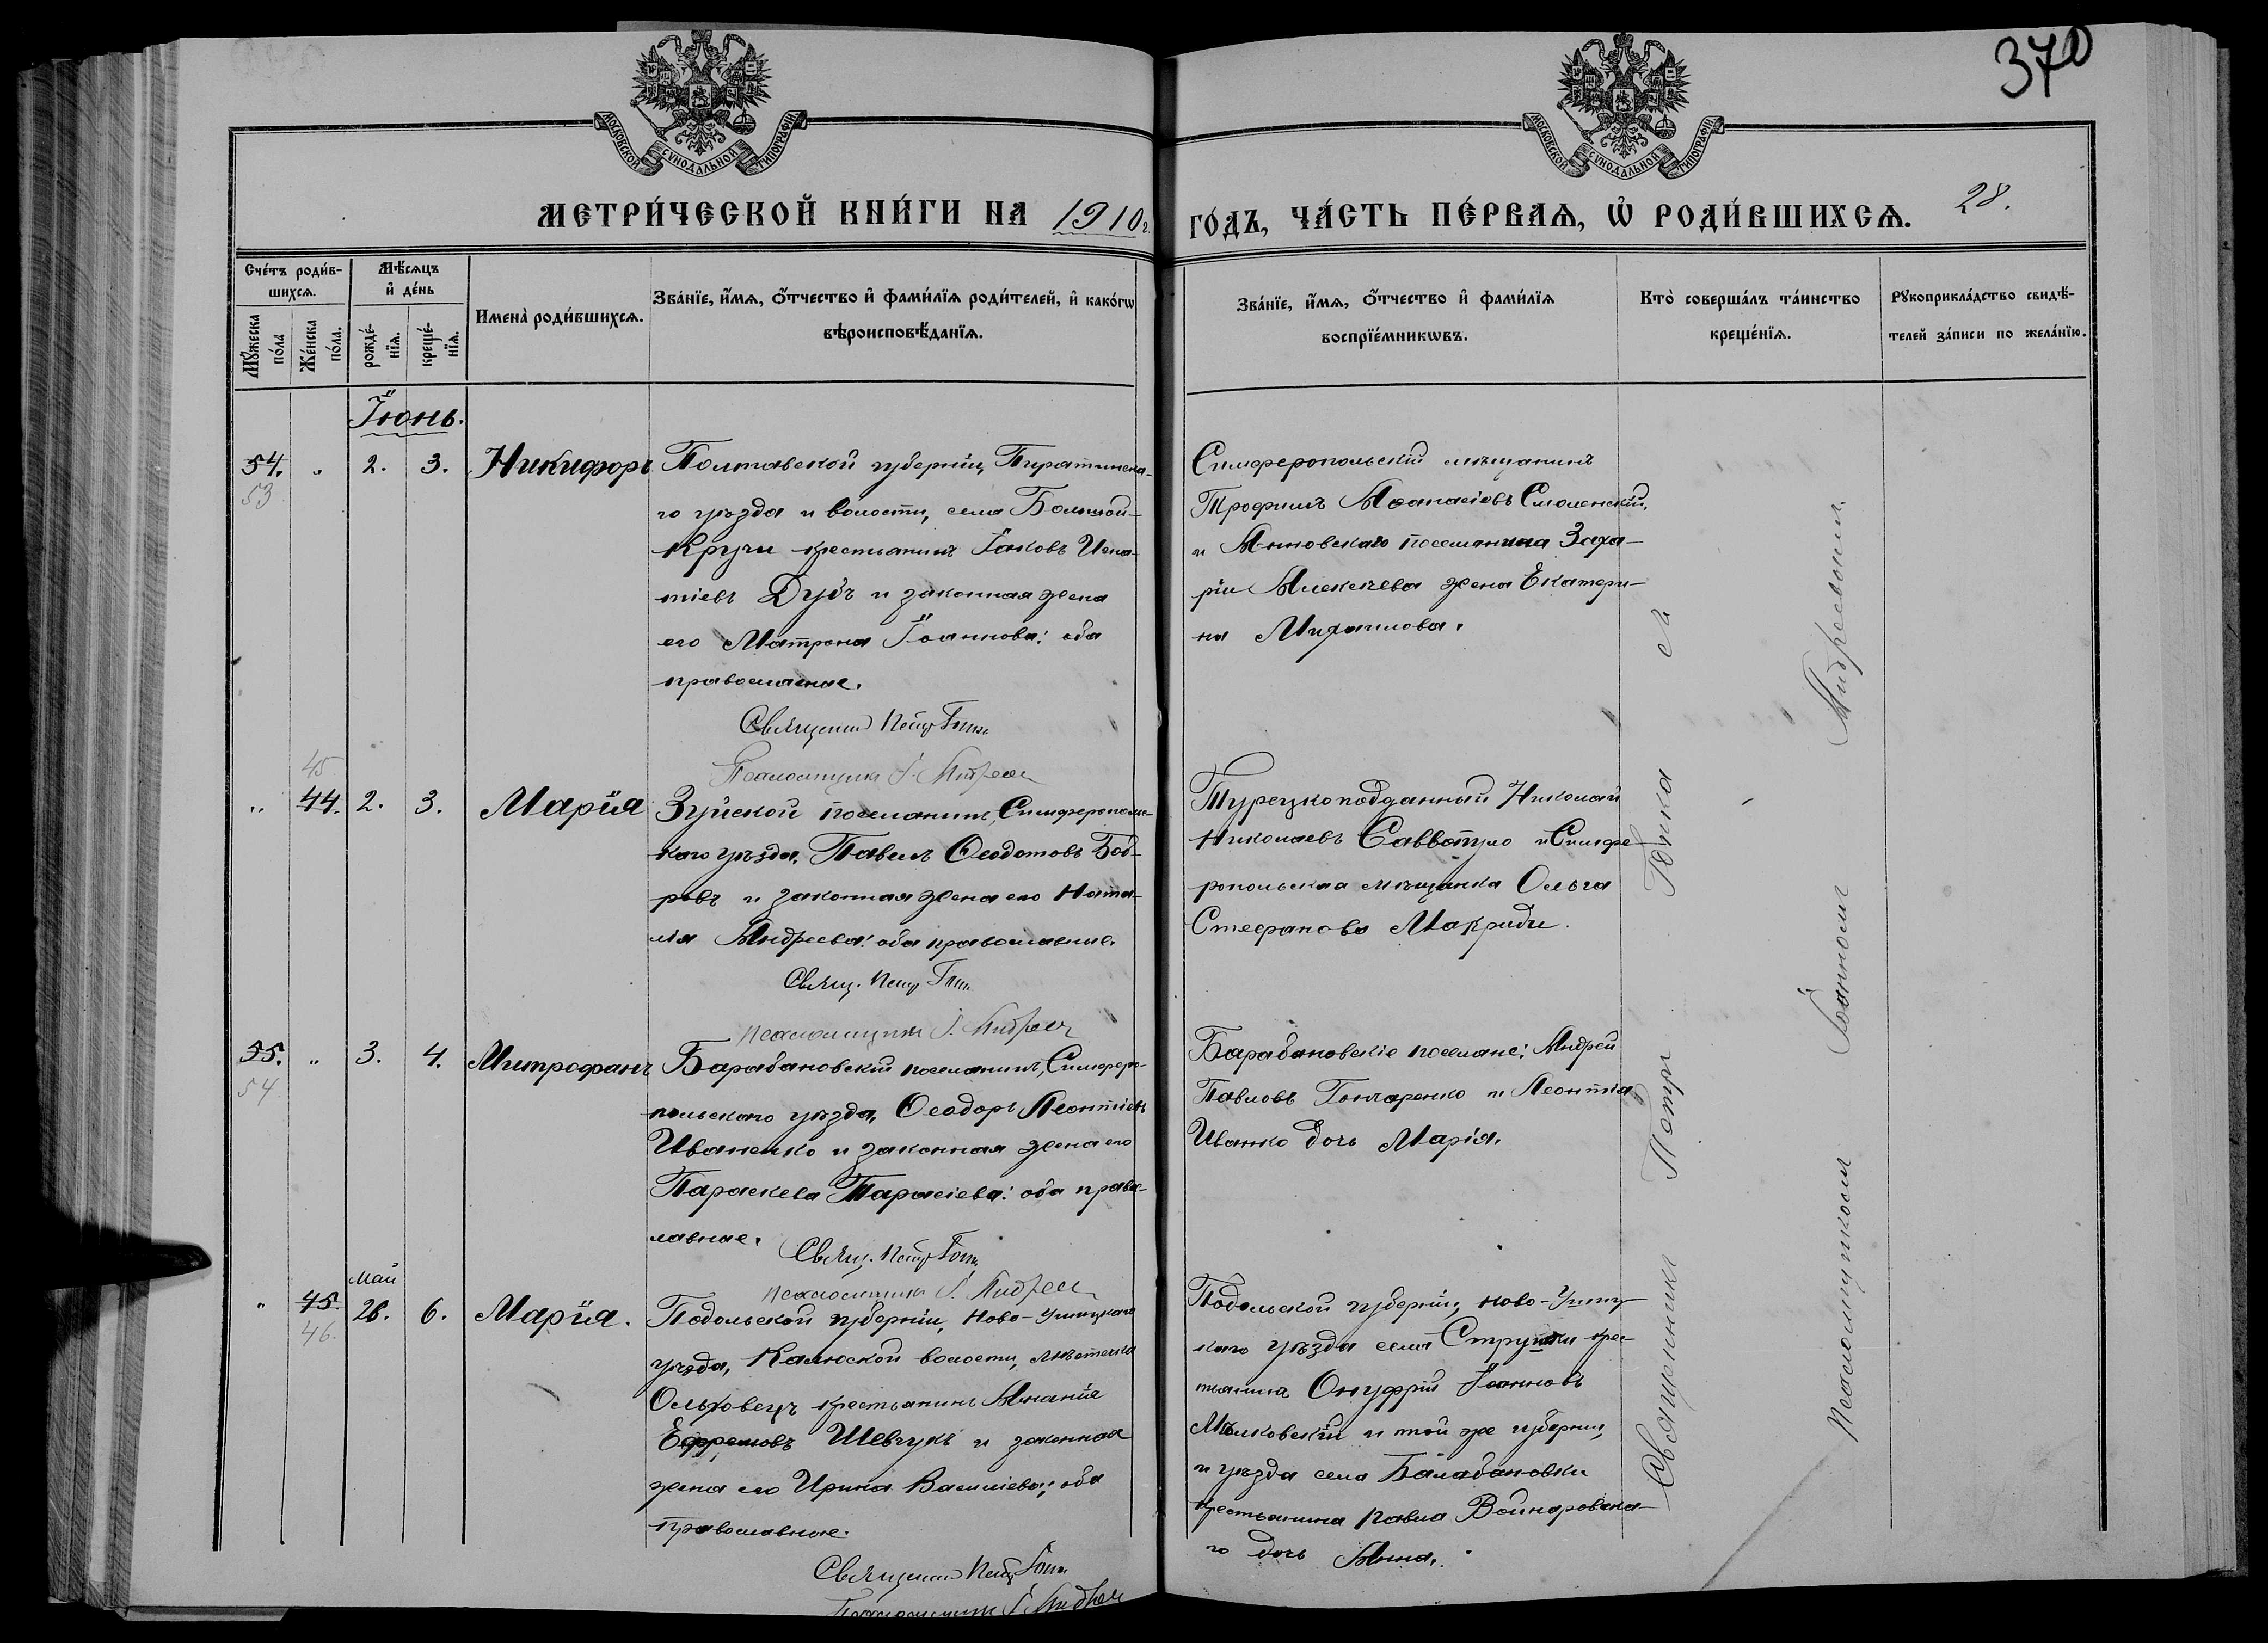 370
МОСКОВСКОЙ СѴНОДАЛЬНОЙ ТИПОГРАФІИ
МОСКОВСКОЙ СѴНОДАЛЬНОЙ ТИПОГРАФІИ
МЕТРИ́ЧЕСКОЙ КНИ́ГИ НА 1910 г.
ГО́ДЪ, ЧА́СТЬ ПЕ́РВАѦ, Ѡ҆ РОДИ́ВШИХСѦ. 28.
Сче́тъ роди́в-
шихсѧ.
Мꙋ́жеска по́ла
Же́нска по́ла.
Мѣ́сѧцъ
и҆ де́нь
рожде́-
нїѧ.
креще́-
нїѧ.
Имена̀ роди́вшихсѧ.
Зва́нїе, и҆́мѧ, ѻ҆́тчество и҆ фами́лїѧ роди́телей, и҆ како́гѡ
вѣроисповѣ́данїѧ.
Зва́нїе, и҆́мѧ, ѻ҆́тчество и҆ фами́лїѧ
воспрїе́мникѡвъ.
Кто̀ соверша́лъ та́инство
креще́нїѧ.
Рꙋкоприкла́дство свидѣ́-
телей за́писи по жела́нїю.
Іюнь.
54. „ 2. 3. Никифоръ
53
Полтавской губерніи, Пирятинска-
го уѣзда и волости, села Большой-
Кручи крестьянинъ Іаковъ Игна-
тіевъ Дубъ и законная жена
его Матрона Іоаннова: оба
православные.
Священникъ Петръ Гонка
Псаломщикъ І. Андреев
Симферопольскій мѣщанинъ
Трофимъ Аѳанасіевъ Смоленскій,
и Анновскаго поселянина Заха-
ріи Алексѣева жена Екатери-
на Михаилова.
45
„ 44. 2. 3. Марія
Зуйской поселянинъ, Симферополь-
каго уѣзда, Павелъ Ѳеодотовъ Боб-
ровъ и законная жена его Ната-
лія Андреева: оба православные.
Свящ. Петръ Гонка
Псаломщикъ І. Андреев
Турецкоподданный Николай
Николаевъ Савватуло и Симфе-
ропольская мѣщанка Ольга
Стефанова Макриди.
55. „ 3. 4. Митрофанъ
54
Барабановскій поселянинъ, Симферо-
польскаго уѣзда, Ѳеодоръ Леонтіевъ
Иваненко и законная жена его
Параскева Тарасіева: оба право-
лавные.
Свящ. Петръ Гонка
Псаломщикъ І. Андреев
Барабановскіе поселяне: Андрей
Павловъ Гончаренко и Леонтія
Иванко дочь Марія.
Май
„ 45. 26. 6. Марія.
46.
Подольской губерніи, Ново-Ушицкаго
уѣзда, Калюской волости, мѣстечка
Ольховецъ крестьянинъ Ананія
Ефремовъ Шевчукъ и законная
жена его Ирина Василіева; оба
православные.
Священникъ Петръ Гонка
Псаломщикъ І. Андреев
Подольской губерніи, Ново-Ушиц-
каго уѣзда села Струшки крес-
тьянинъ Онуфрій Іоанновъ
Мѣлковскій и той же губерніи,
и уѣзда села Балабановки
крестьянина Павла Войнаровска-
го дочь Анна.
Священникъ Петръ Гонка съ
Псаломщикомъ Іоанномъ Андреевымъ.